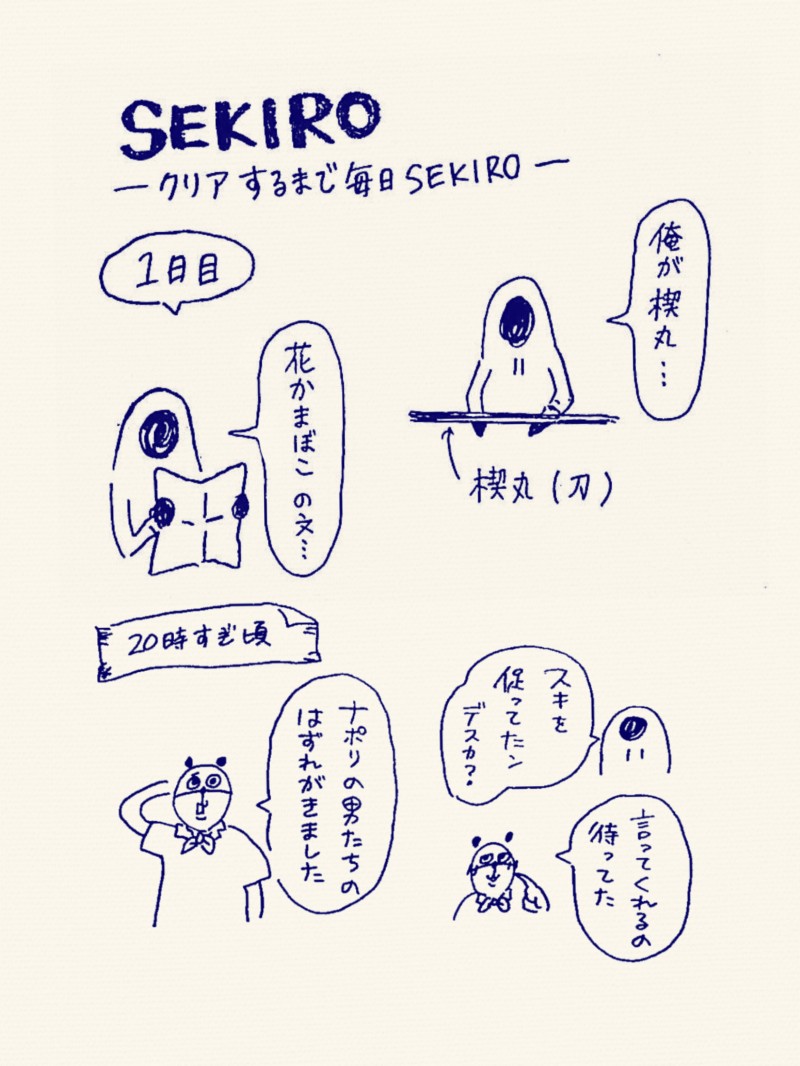 SEKIRO
ークリアするまで毎日SEKIROー
1日目
俺が楔丸…
楔丸(刀)
花かまぼこの文…
20時すぎ頃
ナポリの男たちの
はずれがきました
スキを
促ってたン
デスカ?
言ってくれるの
待ってた